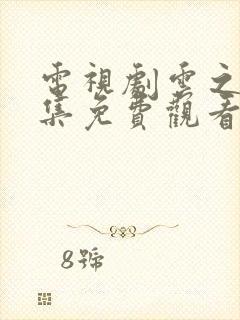 電視劇雲之
集免費觀看
8號